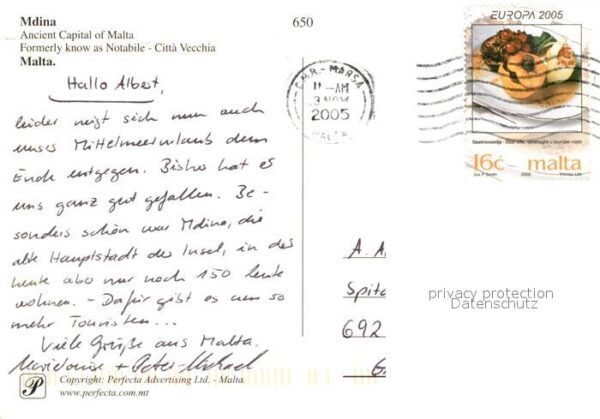 Mdina
650
Ancient Capital of Malta
Formerly know as Notabile - Città Vecchia
Malta.
Hallo Albert,
leider neigt sich nun auch
unser Mittelmeerurlaub dem
Ende entgegen. Bisher hat es
uns ganz gut gefallen. Be-
sonders schön war Mdina, die
alte Hauptstadt der Insel, in der
heute aber nur noch 150 Leute
wohnen. - Dafür gibt es um so
mehr Touristen...
Viele Grüße aus Malta.
+ Peter-Michael
Copyright: Perfecta Advertising Ltd. - Malta.
www.perfecta.com.mt
P
C.M.R. - MARSA
11-AM
3 NOV
2005
MALTA
EUROPA 2005
16c malta
2005
A. A
Spita
692
G
privacy protection
Datenschutz